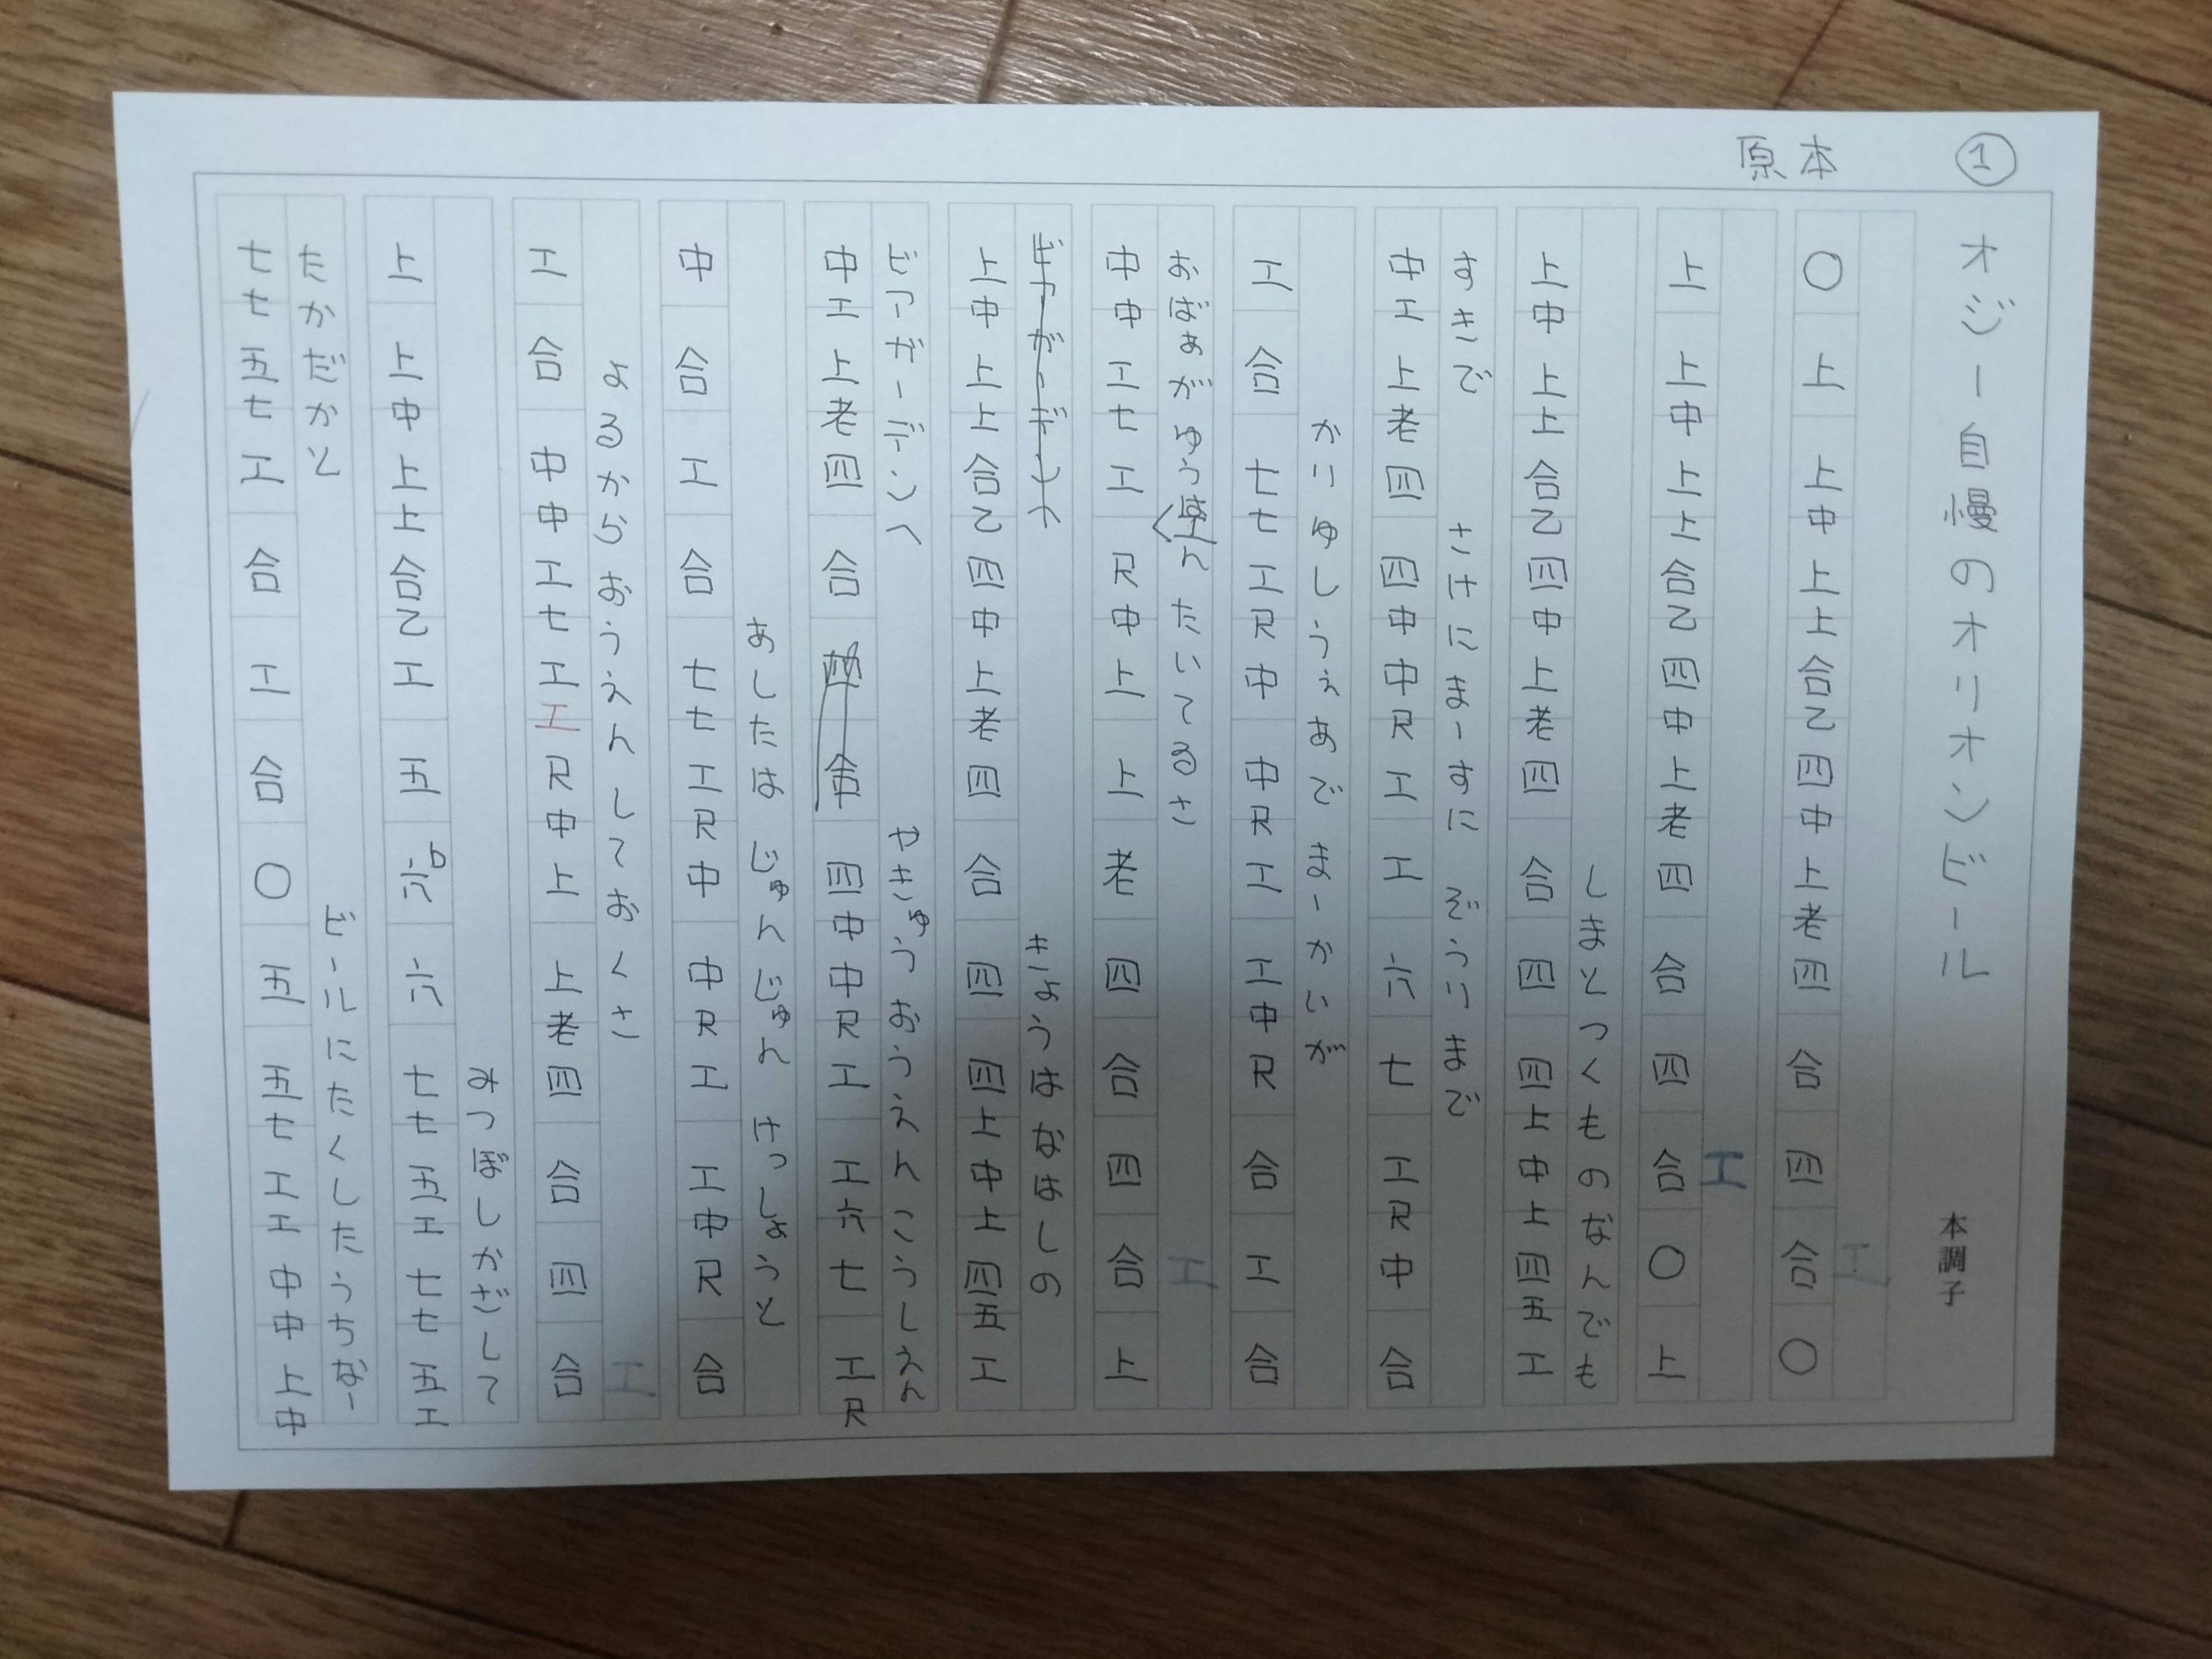 ①
原本
オジー自慢のオリオンビール
本調子
工
〇上上中上上合乙四中上老四合四合〇
工
上上中上上合乙四中上老四合四合〇上
しまとつくものなんでも
上中上上合乙四中上老四合四四上中上四五工
すきで さけにまーすに ぞうりまで
中工上老四四中中尺工工六七工尺中合
かりゆしうぇあで まーかいが
工合七七工尺中中尺工工中尺合工合
おばぁがゆう たいてるさ 工
中中工七工尺中上上老四合四合上
きょうは しの
上中上上合乙四中上老四合四四上中上四五工
やきゅうおうえんこうしえん
中工上老四合四中中尺工工六七工尺
あしたは じゅんじゅん けっしょうと
中合工合七七工尺中中尺工工中尺合
よるからおうえんしておくさ 工
工合中中工七工工尺中上上老四合四合
みつぼしかざして
上上中上上合乙工五六七七五工七七五工
たかだかと ビールにたくしたうちなー
七七五七工合工合〇五五七工工中中上中